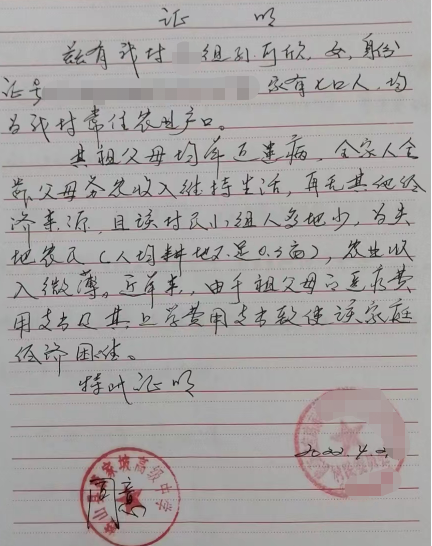 证 明
兹有我村 组刘可欣，女，身份
证号 家有七口人，均
为我村常住农业户口。
其祖父母均年迈患病，全家人全
靠父母务农收入维持生活，再无其他经
济来源，且该村民小组人多地少，为失
地农民（人均耕地不足0.3亩），农业收
入微薄。近年来，由于祖父母的医疗费
用支出及其上学费用支出致使该家庭
经济困难。
特此证明
2022.4.2
高级中学
同意